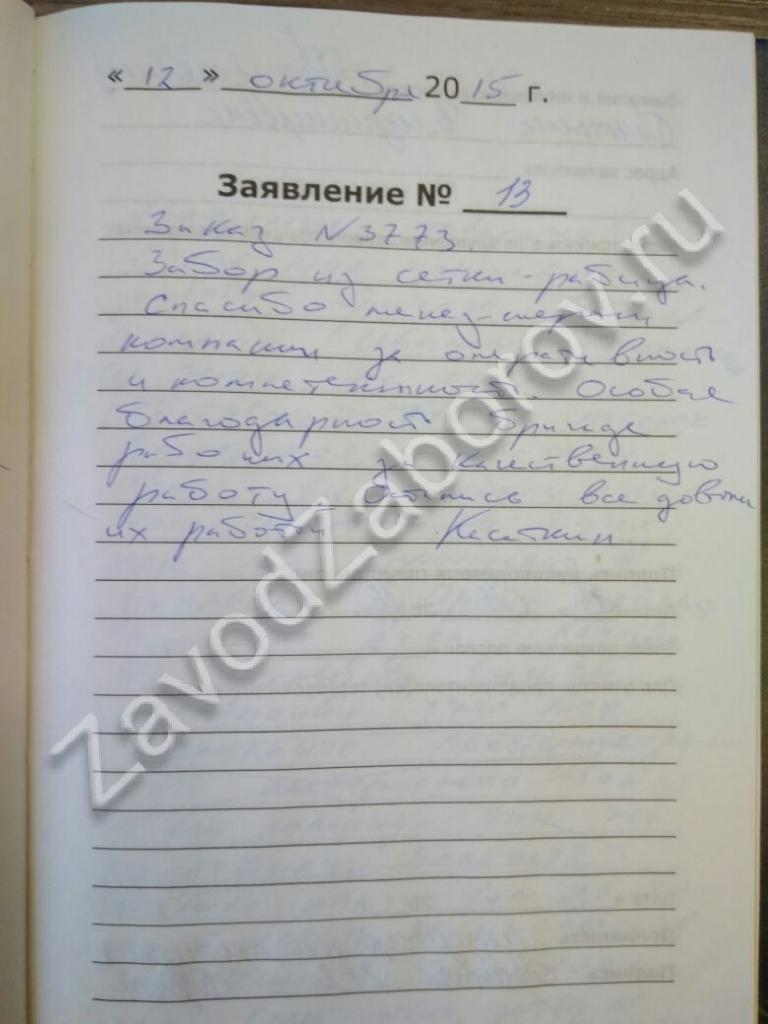 « 12 » октября 2015 г.
Заявление № 13
Заказ N 3773
Забор из сетки-рабица.
Спасибо менеджерам
компании за оперативность
и компетентность. Особая
благодарность бригаде
рабочих за качественную
работу остались все довольны
их работой
ZavodZaborov.ru